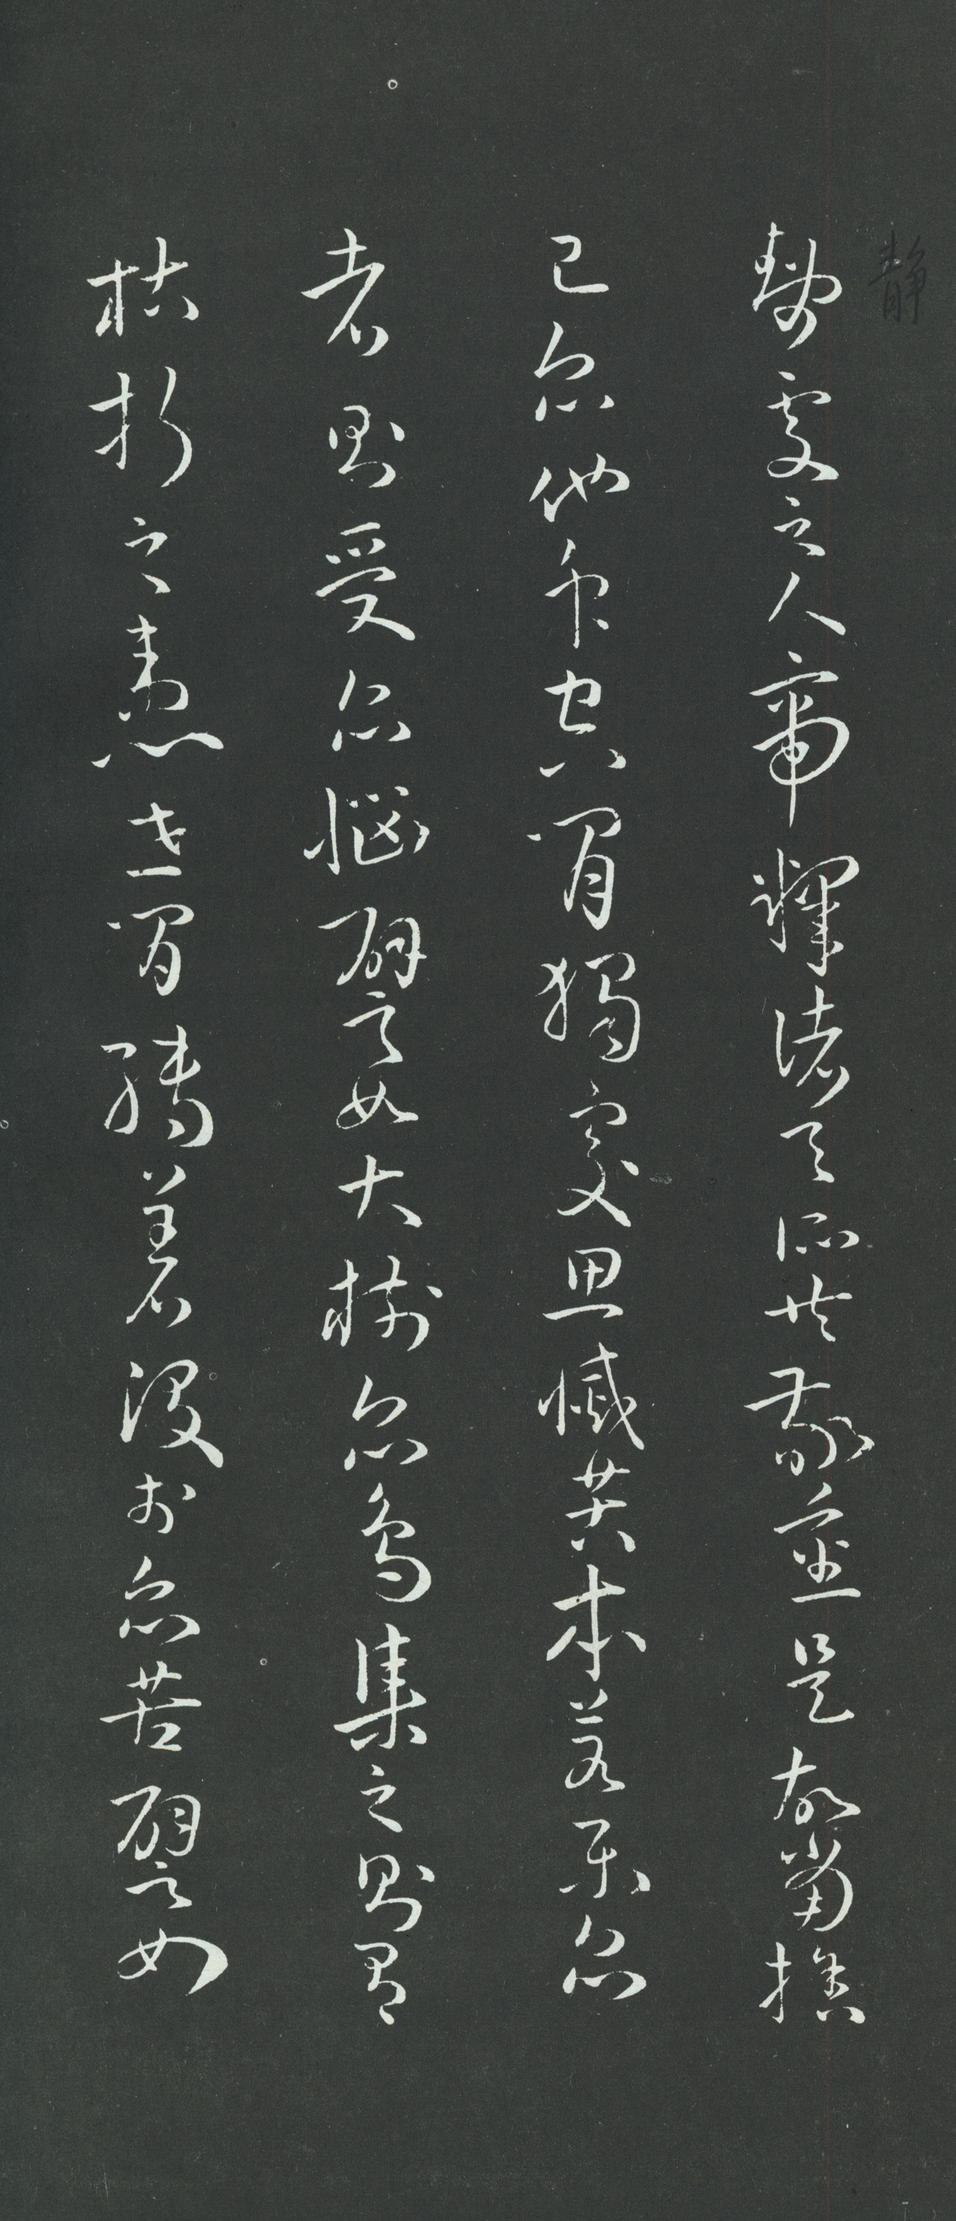 静
静處之人帝釋諸天所共敬重是故當捨
己衆他衆空閒獨處思滅苦本若樂衆
者則受衆惱譬如大樹衆鳥集之則有
枯折之患世間縛著没於衆苦譬如